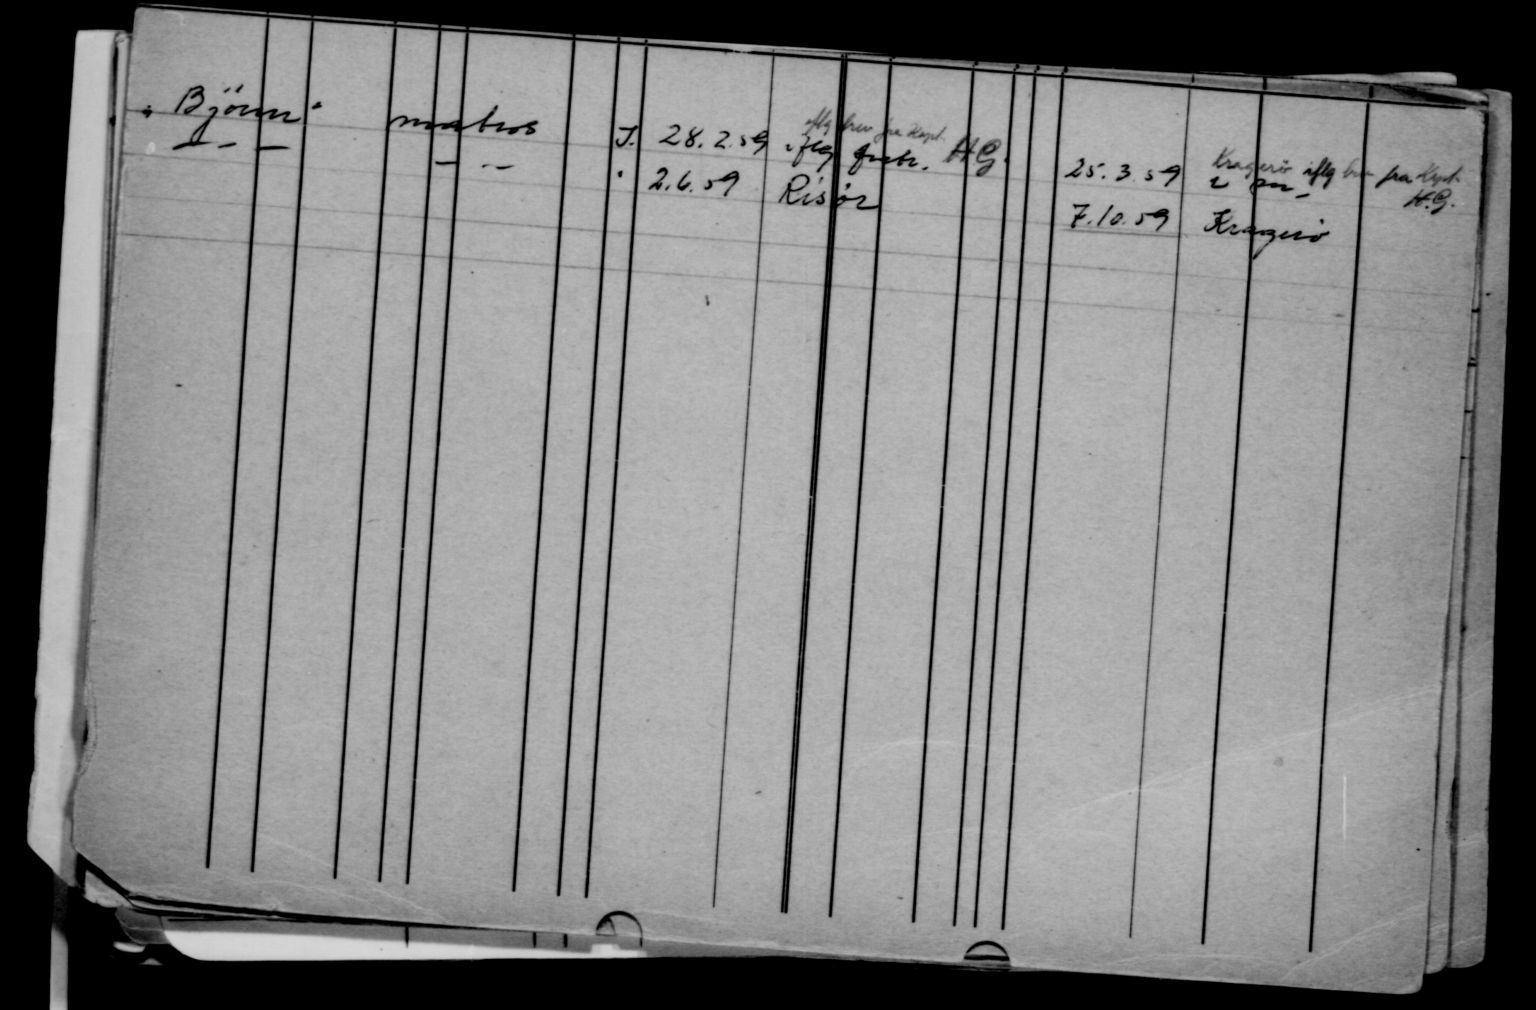 "Björnn" matros J. 28.2.59 iflg fortr. H.G. 25.3.59 Kragerö iflg brev fra Kapt. H.G.
iflg brev fra Kapt.
— - — — - - " 2.6.59 Risör 7.10.59 Kragerö